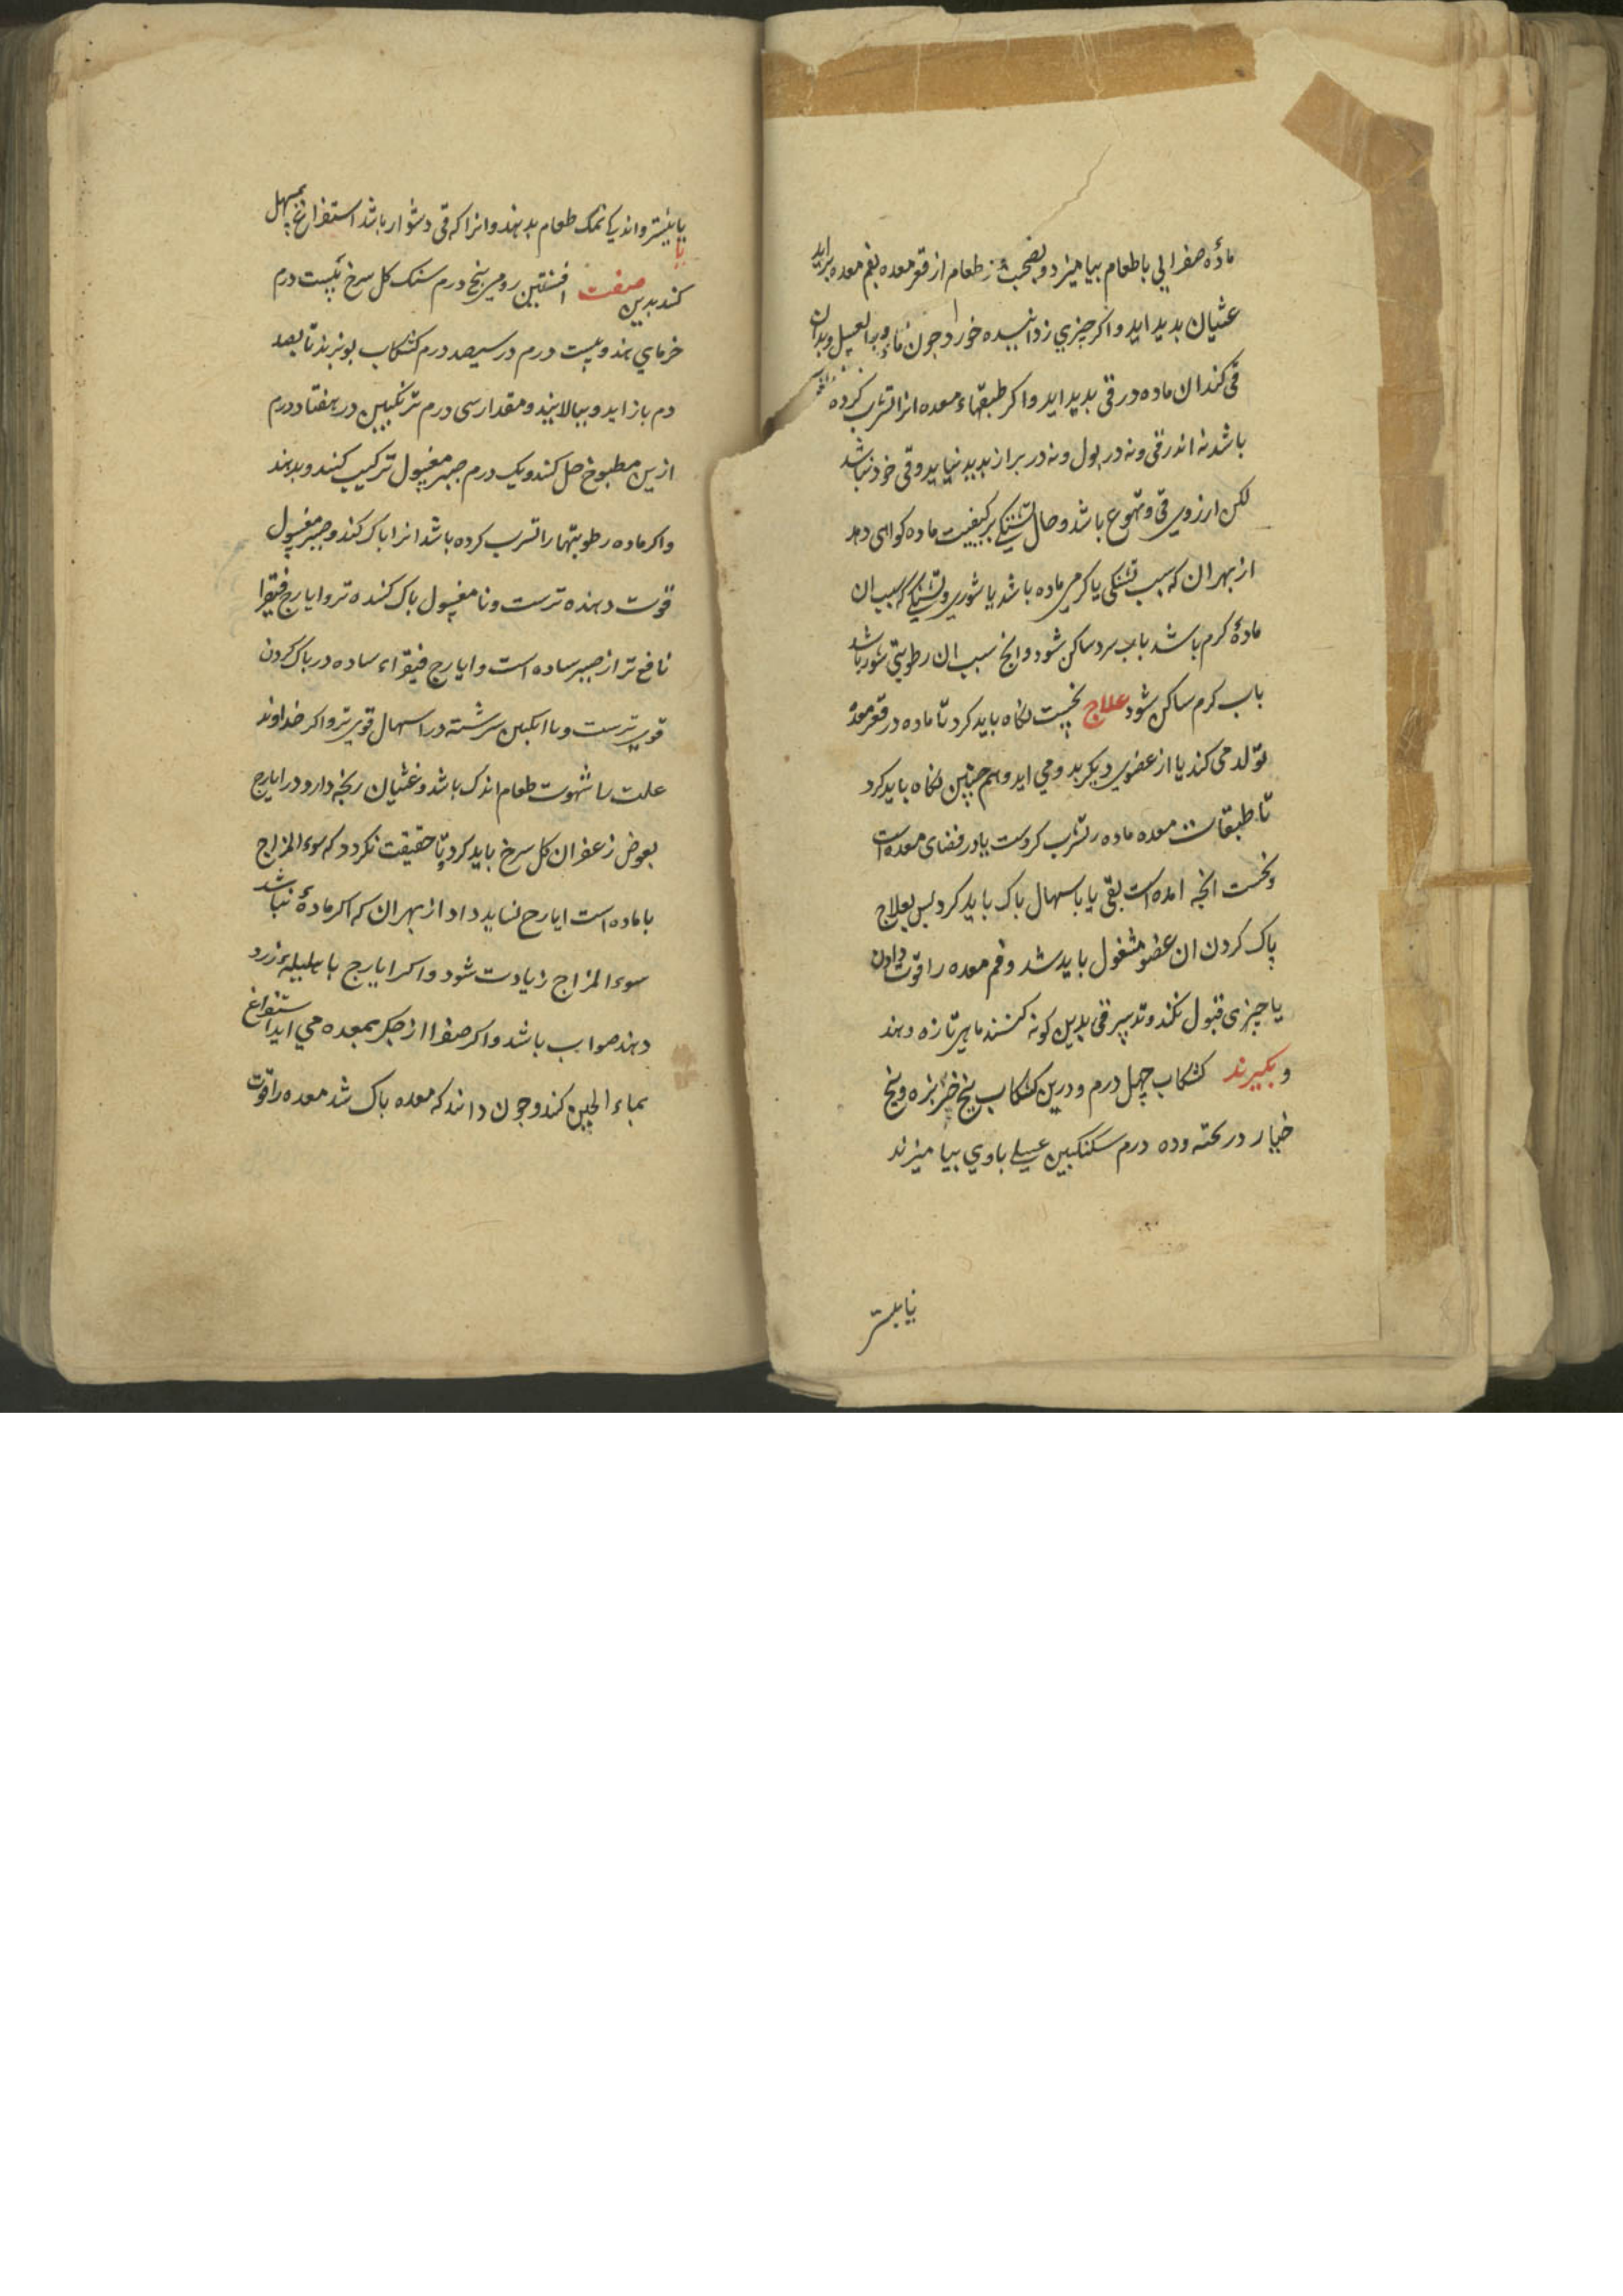 مادّهٔ صفرایی باطعام بیامیزد و بصحبت طعام از قعر معده بفم معده براید
غثیان بدید اید و اکر چیزی زداینده خورد جون ماء العسل و بدان
قی کند ان ماده در قی بدید اید و اکر طبقهاء معده انرا تشرب کرده
باشد نه اندر قی و نه در بول و نه در براز بدید نیاید و قی خود نباشد
لکن ارزوی قی و تهوع باشد و حال تشنکی بر کیفیت ماده کواهی دهد
از بهر ان که سبب تشنکی یا کرمی ماده باشد یا شوری و تشنکی که سبب ان
مادهٔ کرم باشد باب سرد ساکن شود و انج سبب ان رطوبتی شور باشد
باب کرم ساکن شود علاج نخست نکاه باید کرد تا ماده در قعر معده
تولد می کند یا از عضوی دیکر بدو می اید و هم چنین نکاه باید کرد
تا طبقات معده ماده را تشرب کردست یا در فضای معده است
و نخست انجه امده است بقی یا باسهال باک باید کرد بس بعلاج
پاک کردن ان عضو مشغول باید شد و فم معده را قوّت دادن
یا چیزی قبول نکند و تدبیر قی بدین کونه کنند ماهی تازه دهند
و بکیرند کشکاب چهل درم و درین کشکاب بیخ خربزه و بیخ
خیار در بخته و ده درم سکنکبین عسلی با وی بیامیزند
یا بیشتر
یا بیشتر و اندیکا نمک طعام بدهند و انرا که قی دشوار باشد استفراغ بمسهل
کند بدین صفت افسنتین رومی بنج درم سنک کل سرخ بیست درم
خرمای هندو بیست درم در سیصد درم کشکاب بوزند تا بصد
درم باز اید و ببالایند و مقدار سی درم ترنکبین در هفتاد درم
ازین مطبوخ حل کند و یک درم صبر مغسول ترکیب کنند و بدهند
و اکر ماده رطوبتها را تشرب کرده باشد انرا باک کند و صبر مغسول
قوت دهنده ترست و نا مغسول باک کننده تر و ایارج فیقرا
نافع تر از صبر ساده است و ایارج فیقراء ساده در باک کردن
قوی ترست و با انکبین سرشته در اسهال قوی تر و اکر خداوند
علت را شهوت طعام اندک باشد و غثیان رنجه دارد در ایارج
بعوض زعفران کل سرخ باید کرد و تا حقیقت نکردد که سوء المزاج
با ماده است ایارج نشاید داد از بهر ان که اکر مادهٔ نباشد
سوء المزاج زیادت شود و اکر ایارج با هلیلهٔ زرد
دهند صواب باشد و اکر صفرا از جکر بمعده می اید استفراغ
بماء الجبن کند و جون دانند که معده باک شد معده را قوّت